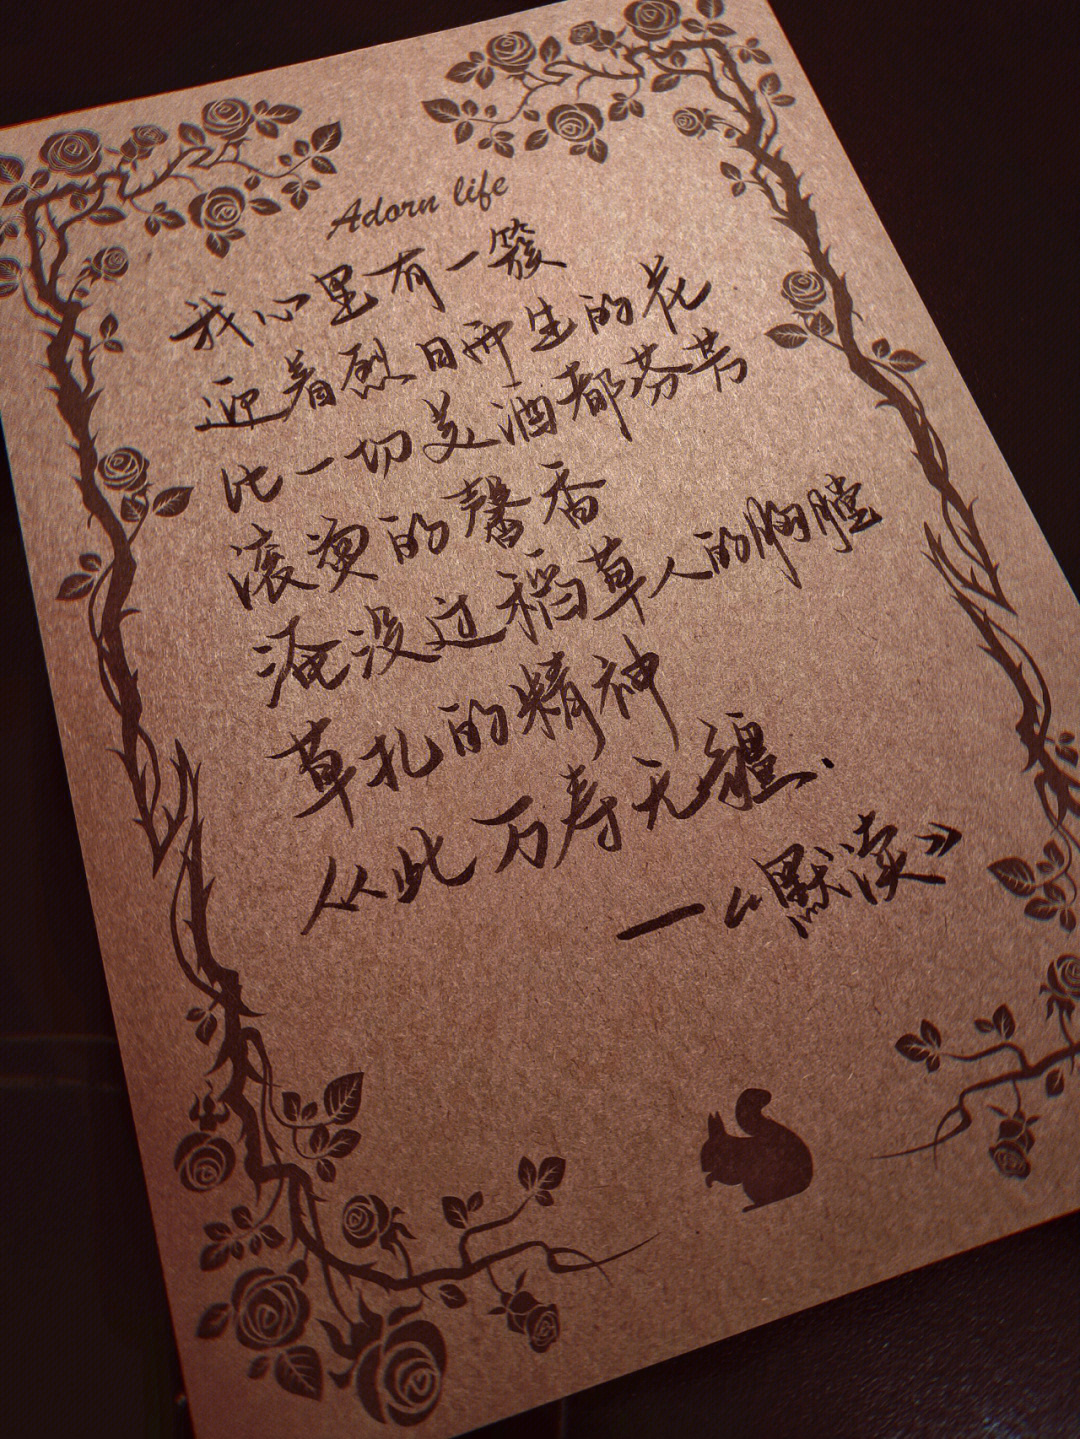 Adorn life
我心里有一簇
迎着烈日而生的花
比一切美酒都芬芳
滚烫的馨香
淹没过稻草人的胸膛
草扎的精神
从此万寿无疆.
—《默读》